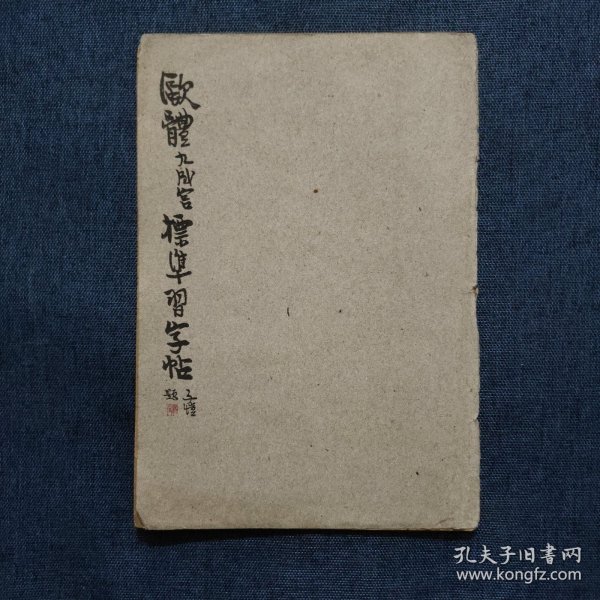 歐體九成宮標準習字帖
子愷
題
孔夫子旧書网
www.kongfz.com